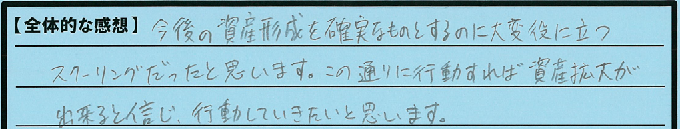 【全体的な感想】今後の資産形成を確実なものとするのに大変役に立つ
スクーリングだったと思います。この通りに行動すれば資産拡大が
出来ると信じ、行動していきたいと思います。